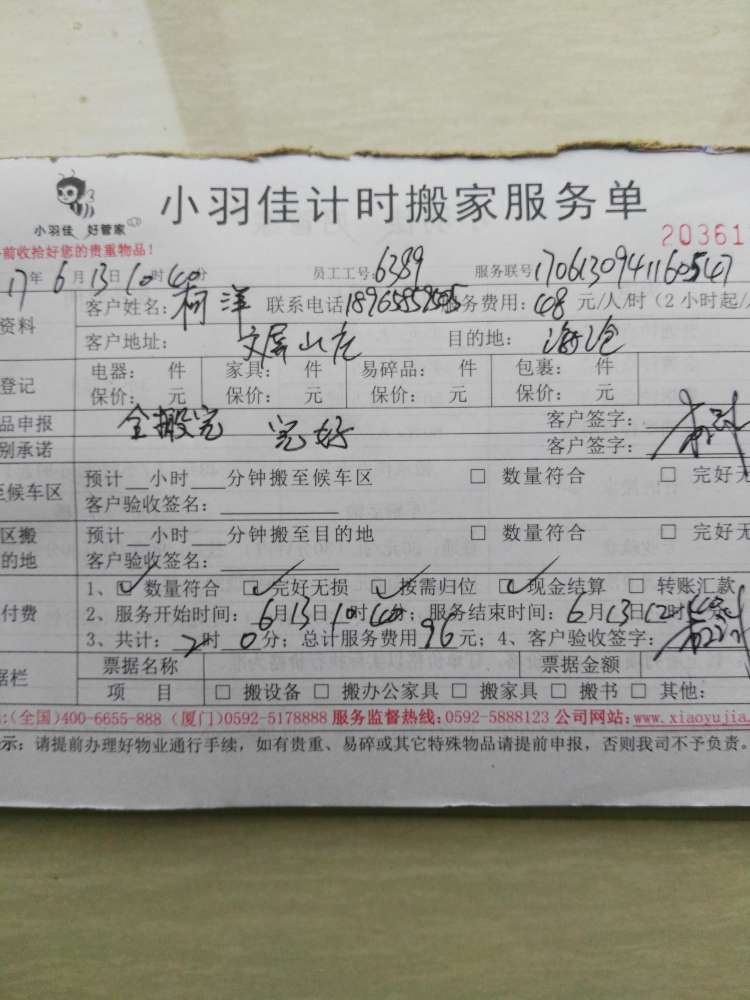 小羽佳 好管家
小羽佳计时搬家服务单
前收拾好您的贵重物品!
20361
17年6月13日10时40分 员工工号:6389 服务联号1706130941160547
资料
客户姓名:柯洋 联系电话 服务费用:48元/人/时(2小时起/
客户地址: 文屏山庄 目的地: 海沧
登记
电器: 件 家具: 件 易碎品: 件 包裹: 件
保价: 元 保价: 元 保价: 元 保价: 元
品申报 全搬完 完好 客户签字:
别承诺 客户签字:
至候车区
预计__小时___分钟搬至候车区 □ 数量符合 □ 完好无
客户验收签名:
区搬
的地
预计__小时___分钟搬至目的地 □ 数量符合 □ 完好无
客户验收签名:
付费
1、☑ 数量符合 ☑ 完好无损 ☑ 按需归位 ☑ 现金结算 □ 转账汇款
2、服务开始时间:6月13日10时40分;服务结束时间:6月13日12时40
3、共计:2时0分;总计服务费用96元;4、客户验收签字:
据栏
票据名称 票据金额
项 目 □ 搬设备 □ 搬办公家具 □ 搬家具 □ 搬书 □ 其他:
:(全国)400-6655-888 (厦门)0592-5178888 服务监督热线:0592-5888123 公司网站:www.xiaoyujia.
示:请提前办理好物业通行手续,如有贵重、易碎或其它特殊物品请提前申报,否则我司不予负责。